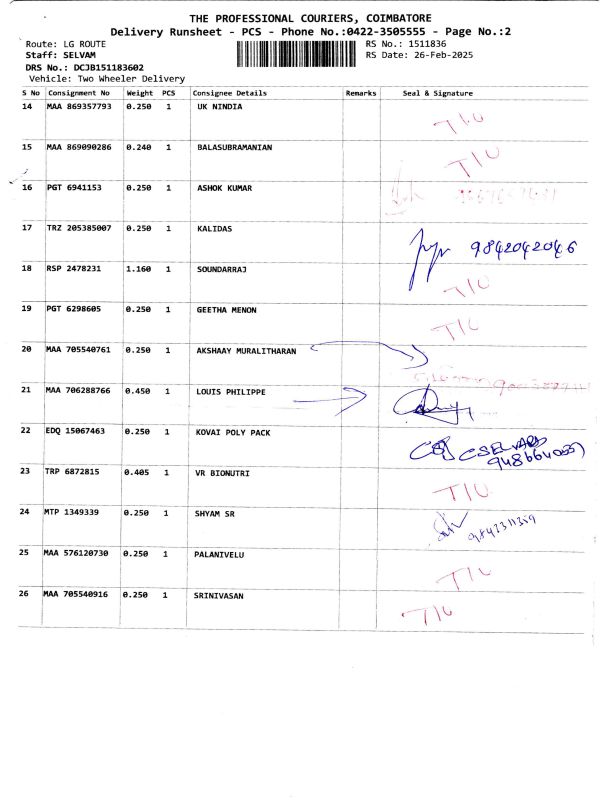 THE PROFESSIONAL COURIERS, COIMBATORE
Delivery Runsheet - PCS - Phone No.:0422-3505555 - Page No.:2
Route: LG ROUTE RS No.: 1511836
Staff: SELVAM RS Date: 26-Feb-2025
DRS No.: DCJB151183602
Vehicle: Two Wheeler Delivery
S No Consignment No Weight PCS Consignee Details Remarks Seal & Signature
14 MAA 869357793 0.250 1 UK NINDIA TIU
15 MAA 869090286 0.240 1 BALASUBRAMANIAN TIU
16 PGT 6941153 0.250 1 ASHOK KUMAR
17 TRZ 205385007 0.250 1 KALIDAS 9842042046
18 RSP 2478231 1.160 1 SOUNDARRAJ TIU
19 PGT 6298605 0.250 1 GEETHA MENON TIU
20 MAA 705540761 0.250 1 AKSHAAY MURALITHARAN
21 MAA 706288766 0.450 1 LOUIS PHILIPPE
22 EDQ 15067463 0.250 1 KOVAI POLY PACK
23 TRP 6872815 0.405 1 VR BIONUTRI TIU
24 MTP 1349339 0.250 1 SHYAM SR
25 MAA 576120730 0.250 1 PALANIVELU TIU
26 MAA 705540916 0.250 1 SRINIVASAN TIU